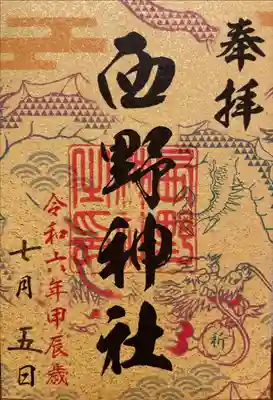 奉拝
西野神社
令和六年甲辰歳
七月五日
祈